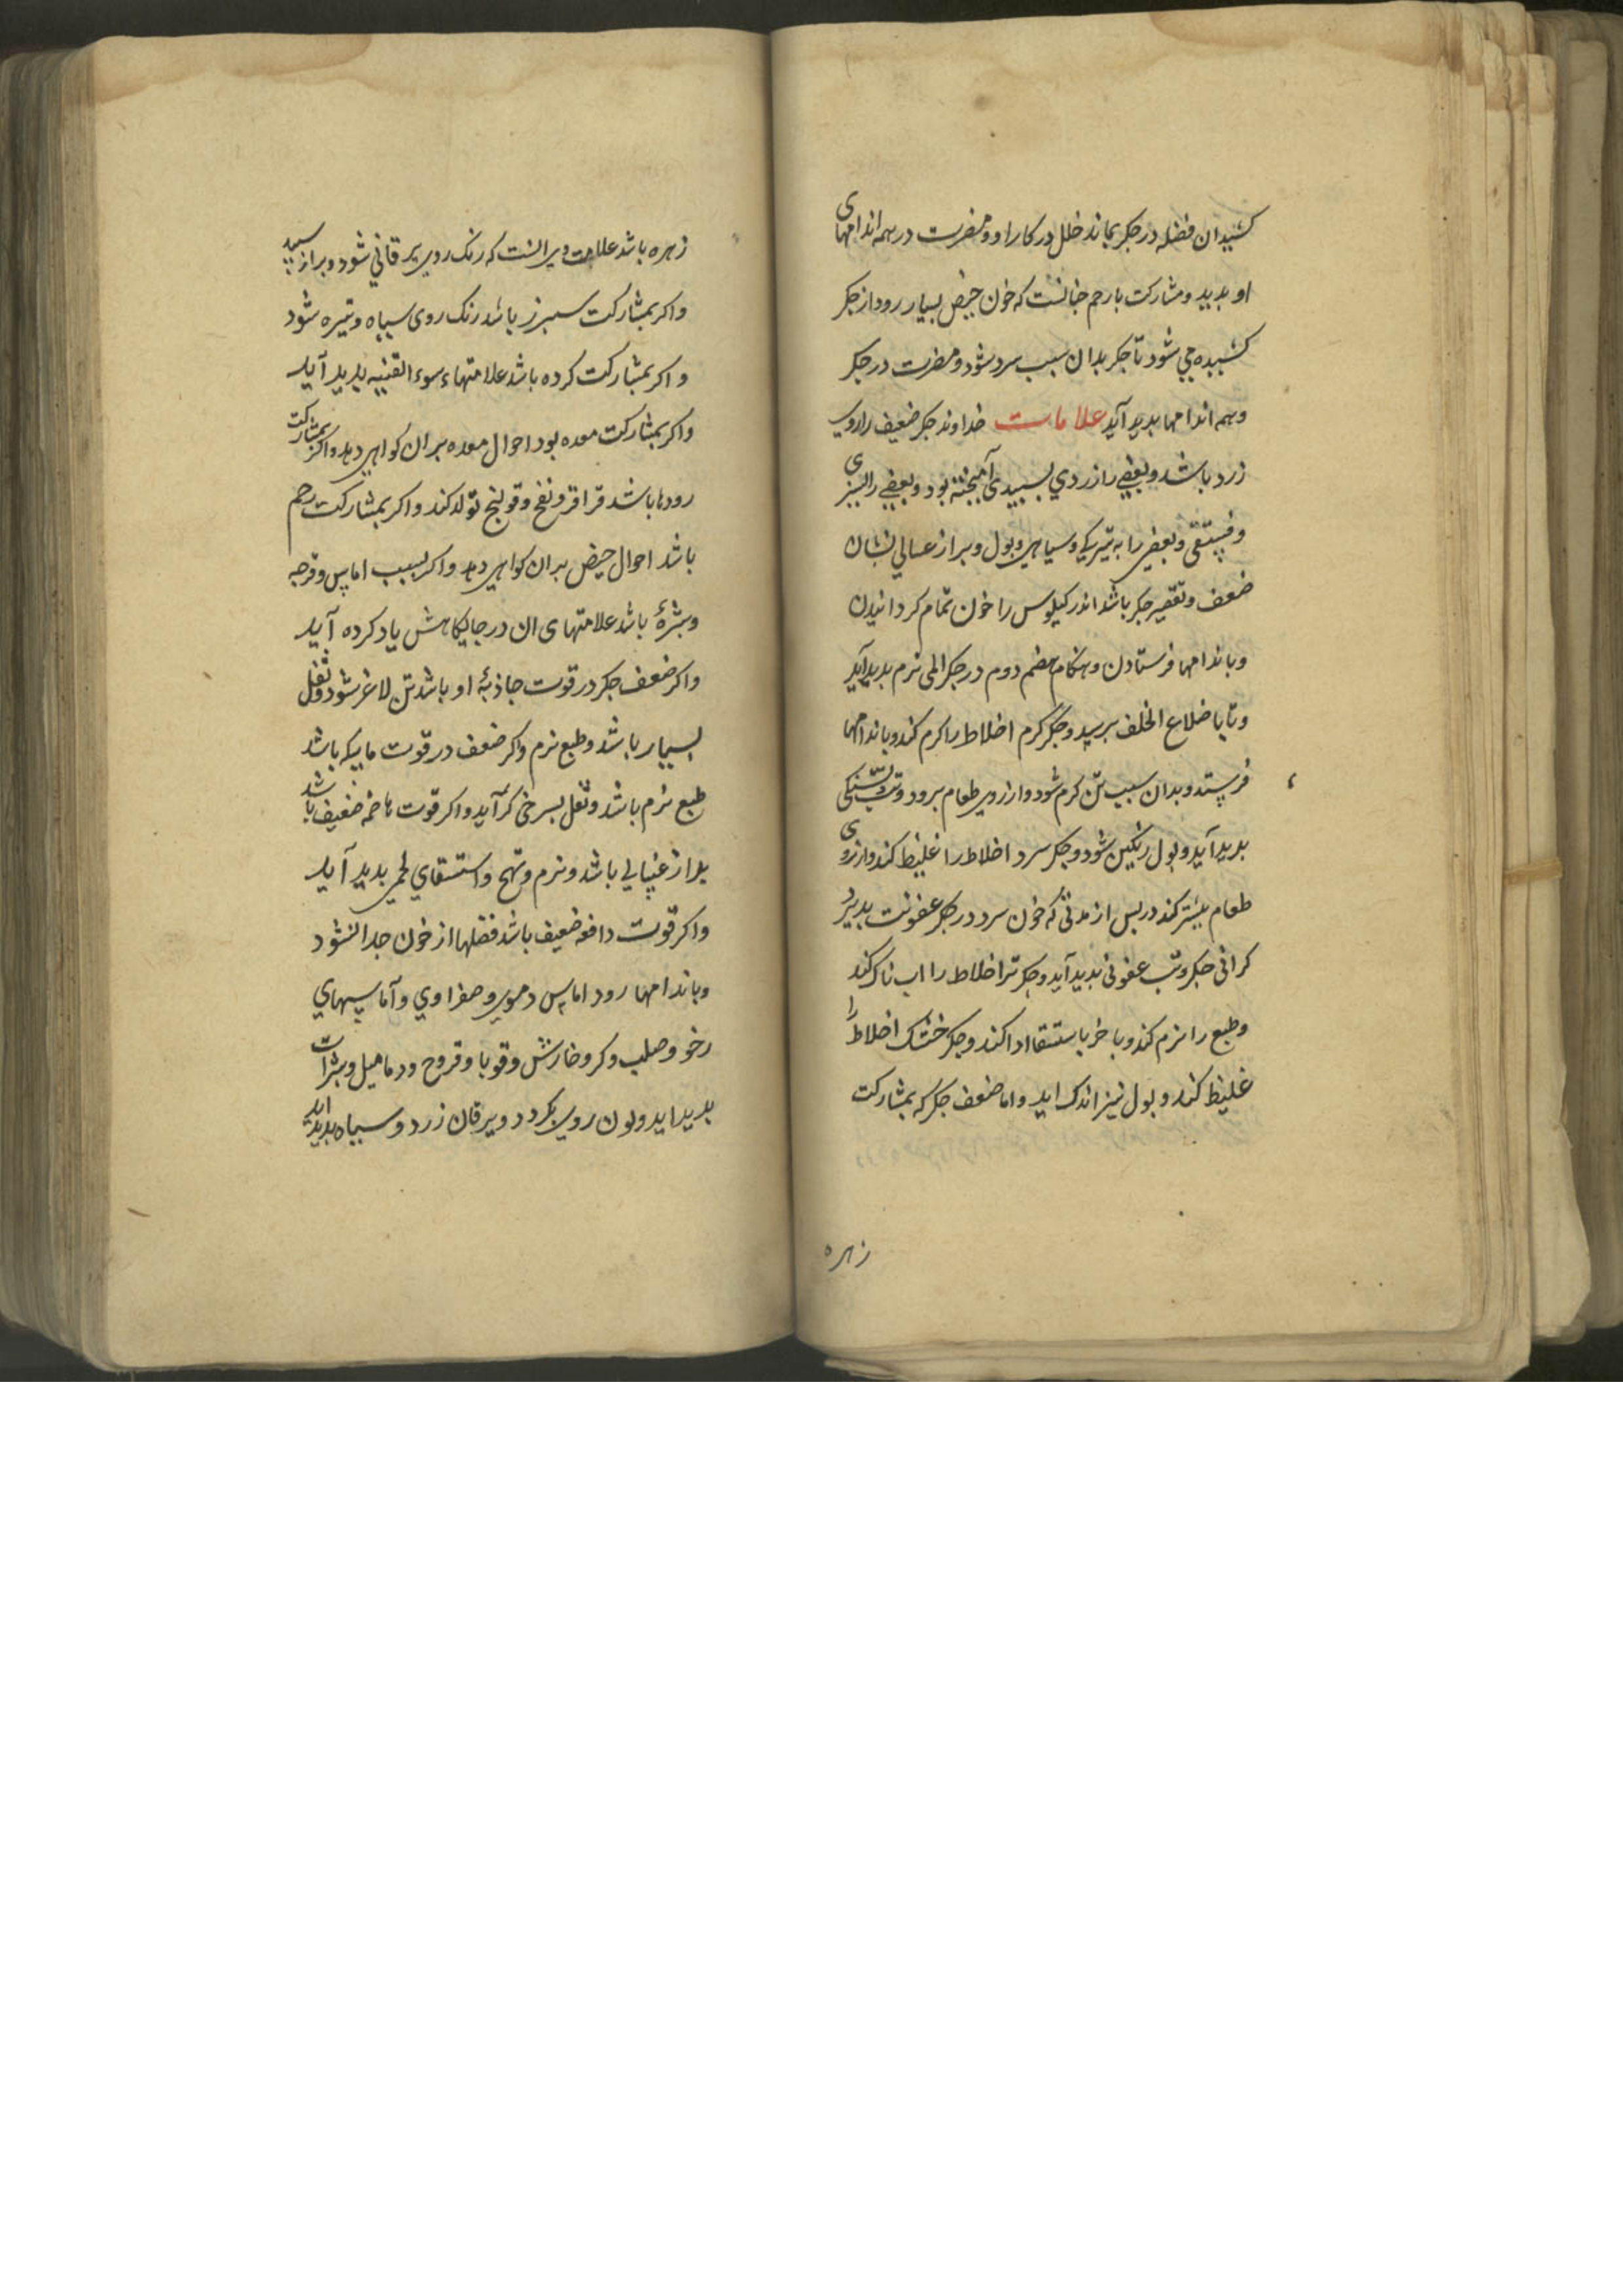 کشیدان فضله در جکر بماند خلل در کار او و مضرت در همه اندامهای
او بدید و مشارکت با رحم جنانست که خون حیض بسیار رود از جکر
کشیده می شود تا جکر بدان سبب سرد شود و مضرت در جکر
و همه اندامها بدید آید علامات خداوند جکر ضعیف را روی
زرد باشد و بعضی را زردی بسبیدی آمیخته بود و بعضی را بسبزی
و فستقی و بعضی را به تیرکی و سیاهی و بول و براز غسالی نشان
ضعف و تقصیر جکر باشد اندر کیلوس را خون تمام کردانیدن
و باندامها فرستادن و هنکام هضم دوم در جکر المی نرم بدید آید
و تا باضلاع الخلف برسد و جکر کرم اخلاط را کرم کند و باندامها
فرستد و بدان سبب تن کرم شود و ارزوی طعام برود و تب و تشنکی
بدید آید و بول رنکین شود و جکر سرد اخلاط را غلیظ کند و ارزوی
طعام بیشتر کند و بس از مدتی که خون سرد در جکر عفونت بدیرد
کرانی جکر و تب عفونی بدید آید و جکر تر اخلاط را اب ناک کند
و طبع را نرم کند و باخر باستسقا ادا کند و جکر خشک اخلاط را
غلیظ کند و بول نیز اندک اید و اما ضعف جکر که بمشارکت
زهره
زهره باشد علامت وی انست که رنک روی یرقانی شود و براز سپید
و اکر بمشارکت سبرز باشد رنک روی سیاه و تیره شود
و اکر بمشارکت کرده باشد علامتهاء سوء القنیه بدید آید
و اکر بمشارکت معده بود احوال معده بران کواهی دهد و اکر بمشارکت
رودها باشد قراقر و نفخ و قولنج تولد کند و اکر بمشارکت رحم
باشد احوال حیض بران کواهی دهد و اکر بسبب اماس و قرحه
و بثرهٔ باشد علامتهای ان در جایکاهش یاد کرده آید
و اکر ضعف جکر در قوت جاذبهٔ او باشد تن لاغر شود و ثفل
بسیار باشد و طبع نرم و اکر ضعف در قوت ماسکه باشد
طبع نرم باشد و ثفل بسرخی کرآید و اکر قوت هاضمه ضعیف باشد
براز غسالی باشد و نرم و تهبج و استسقای لحمی بدید آید
و اکر قوت دافعه ضعیف باشد فضلها از خون جدا نشود
و باندامها رود اماس دموی و صفراوی و آماسهای
رخو و صلب و کر و خارش و قوبا و قروح و دمامیل و بثرات
بدید اید و لون روی بکردد و یرقان زرد و سیاه بدید اید